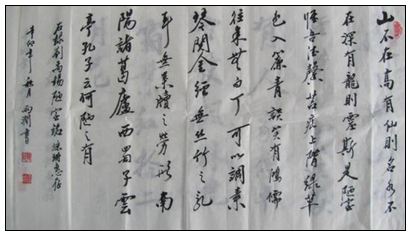 山不在高有仙則名水不
在深有龍則靈斯是陋室
惟吾德馨苔痕上階緑草
色入簾青談笑有鴻儒
往來無白丁可以調素
琴閱金經無丝竹之乱
耳無案牘之勞形南
陽諸葛廬西蜀子雲
亭孔子云何陋之有
右録劉禹錫陋室铭 惠存
辛卯年秋月 書